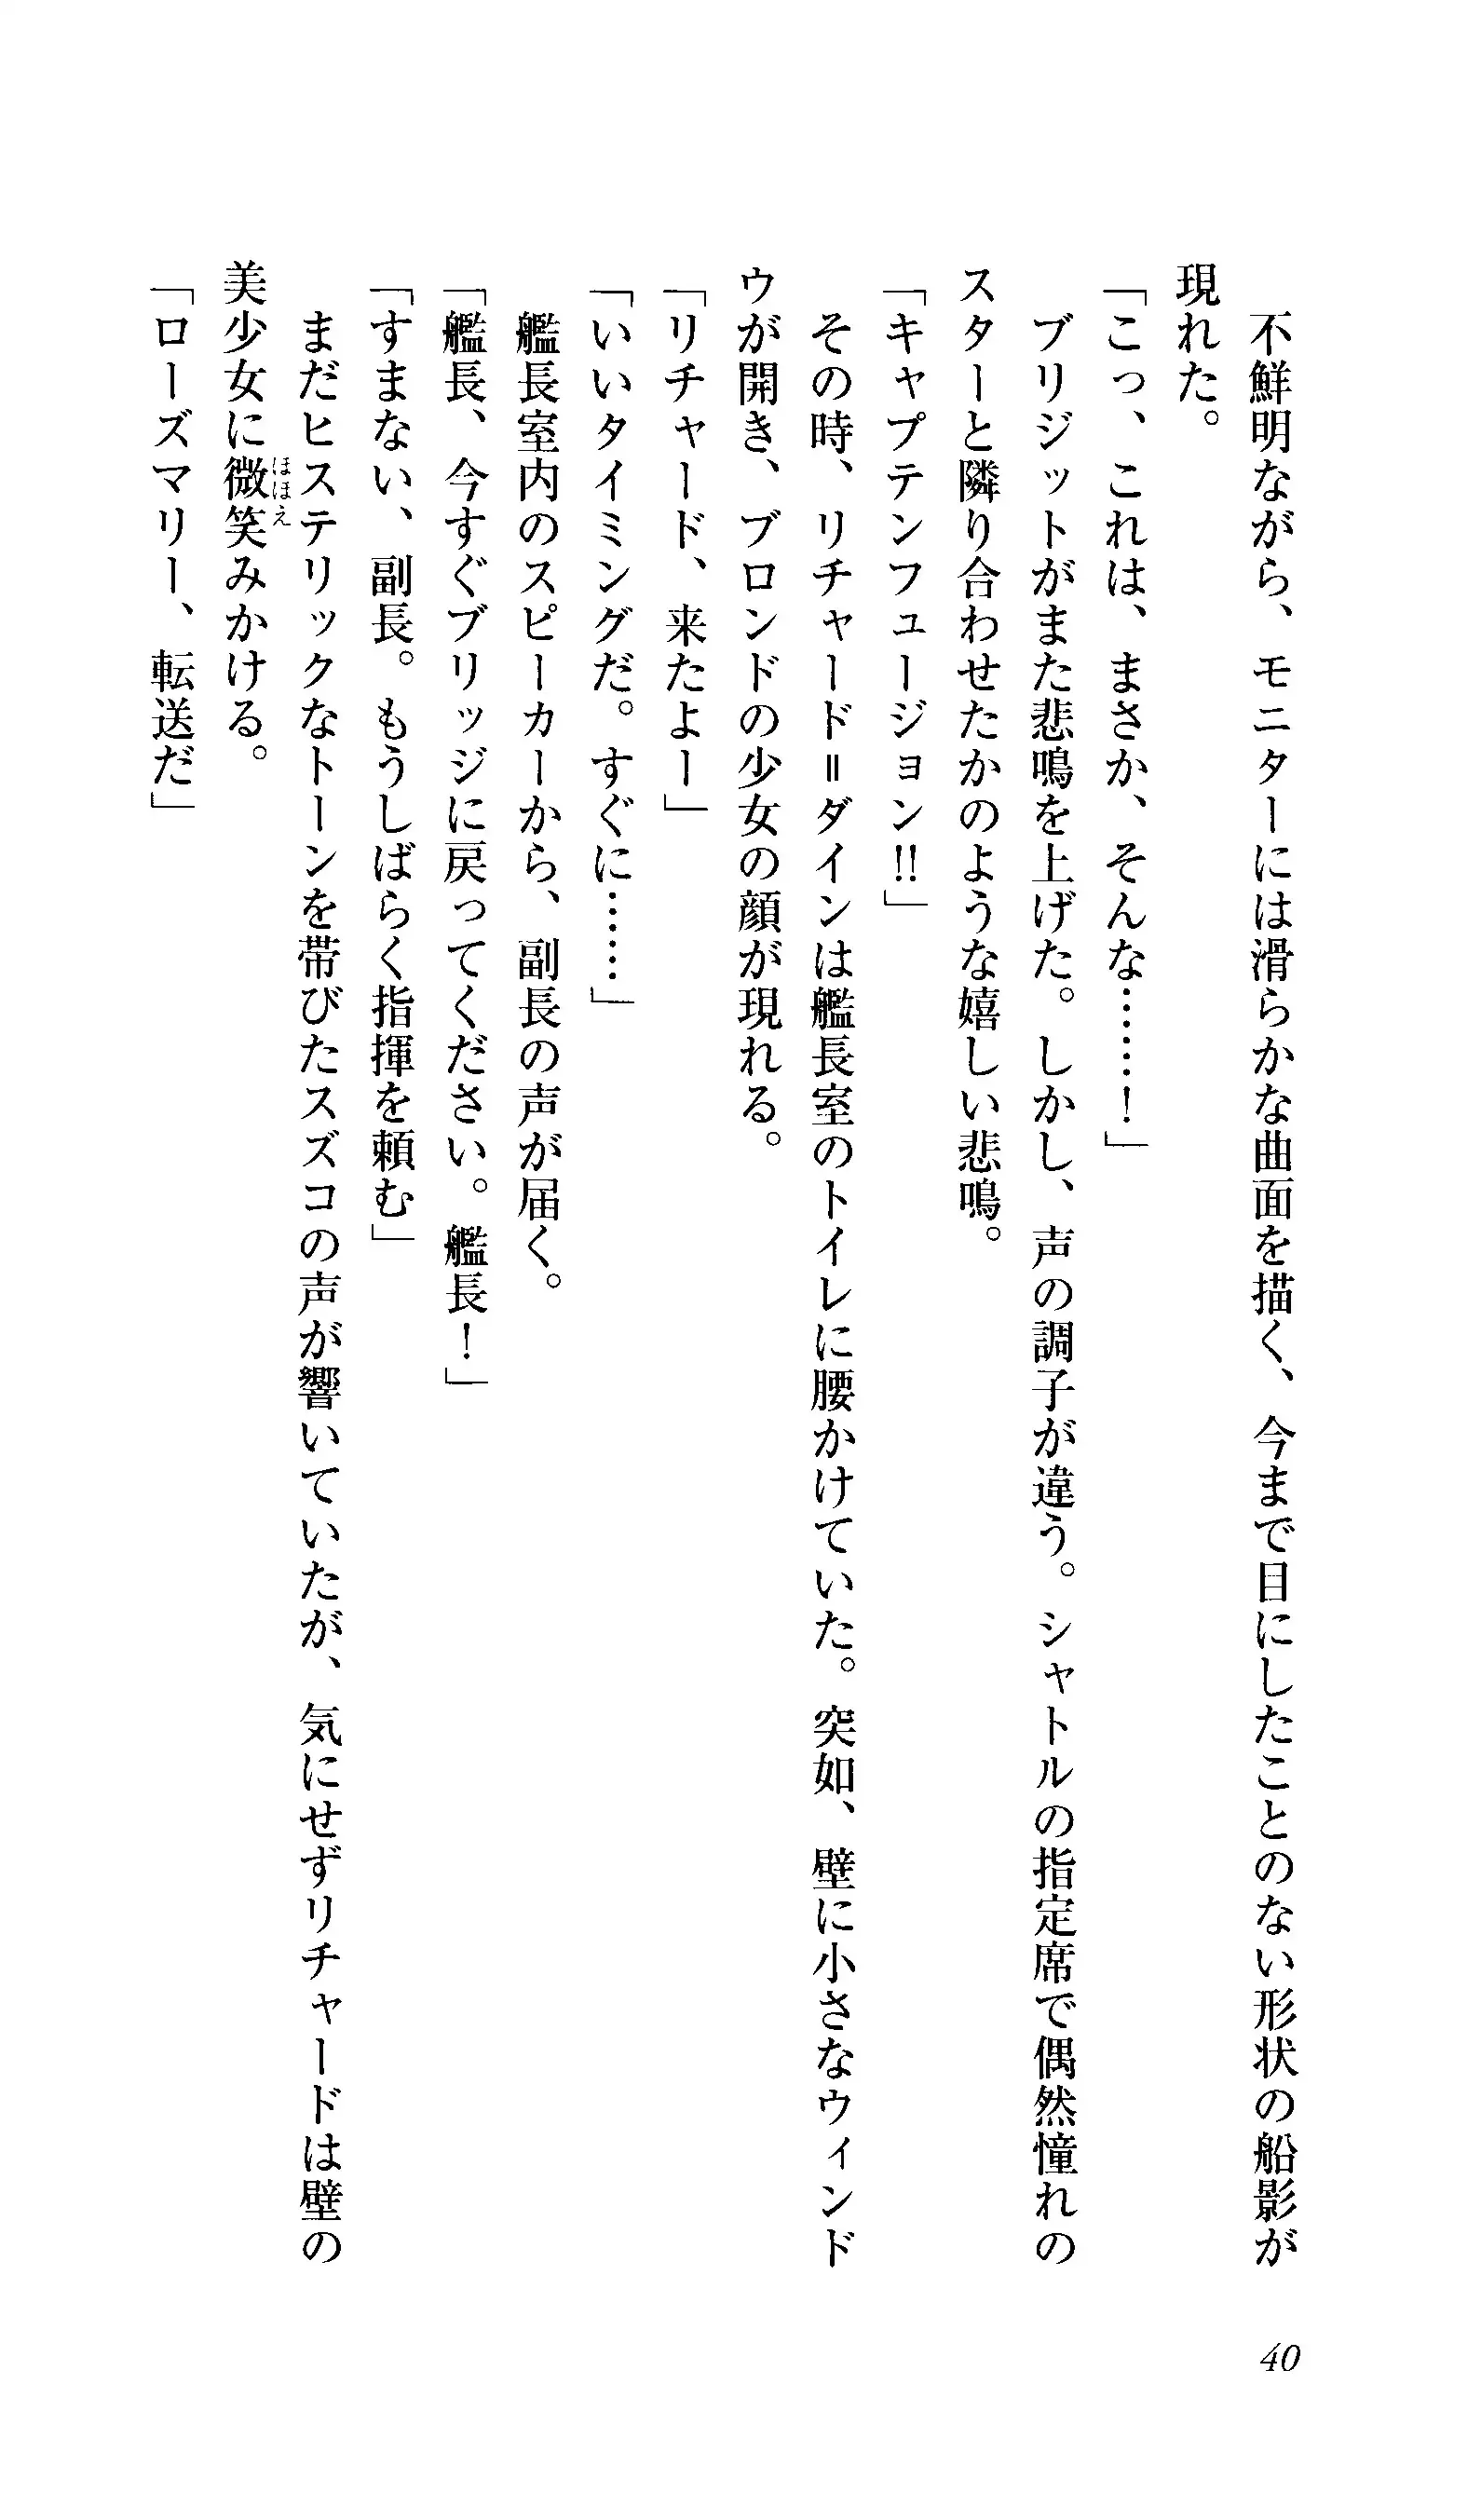 不鮮明ながら、モニターには滑らかな曲面を描く、今まで目にしたことのない形状の船影が
現れた。
「こっ、これは、まさか、そんな……！」
ブリジットがまた悲鳴を上げた。しかし、声の調子が違う。シャトルの指定席で偶然憧れの
スターと隣り合わせたかのような嬉しい悲鳴。
「キャプテンフュージョン‼」
その時、リチャード＝ダインは艦長室のトイレに腰かけていた。突如、壁に小さなウィンド
ウが開き、ブロンドの少女の顔が現れる。
「リチャード、来たよー」
「いいタイミングだ。すぐに……」
艦長室内のスピーカーから、副長の声が届く。
「艦長、今すぐブリッジに戻ってください。艦長！」
「すまない、副長。もうしばらく指揮を頼む」
まだヒステリックなトーンを帯びたスズコの声が響いていたが、気にせずリチャードは壁の
美少女に微笑みかける。
ほほえ
「ローズマリー、転送だ」
40